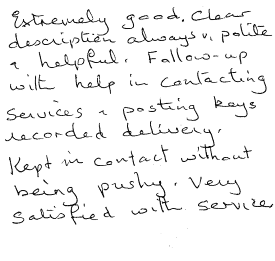 Extremely good. Clear
description always v. polite
& helpful. Follow-up
with help in contacting
services & posting keys
recorded delivery.
Kept in contact without
being pushy. Very
satisfied with service